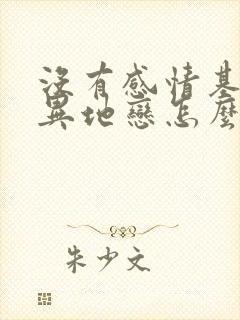 没有感情基
異地戀怎麼
朱少文